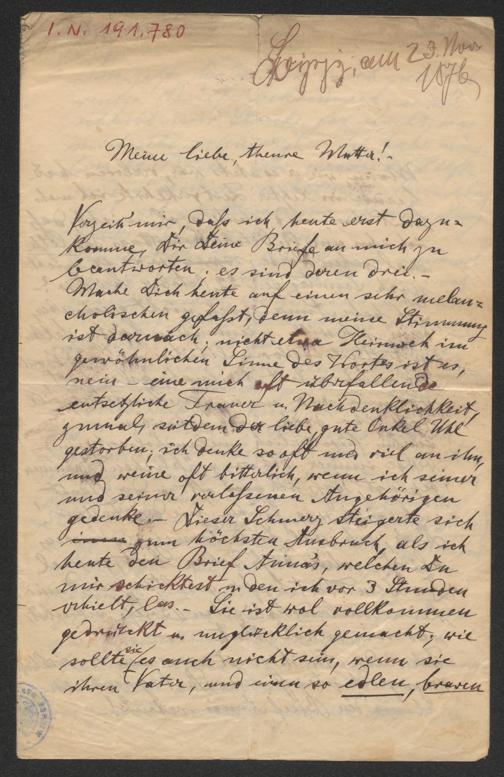 I. N. 191.780
Leipzig, am 23. Nov.
1876
Meine liebe, theure Mutter! -
Verzeih' mir, daß ich heute erst dazu=
komme, Dir Deine Briefe an mich zu
beantworten; es sind deren drei. -
Mache Dich heute auf einen sehr melan=
cholischen gefaßt, denn meine Stimmung
ist darnach; nicht etwa Heimweh im
gewöhnlichen Sinne des Wortes ist es,
nein - eine mich oft überfallende
entsetzliche Trauer u. Nachdenklichkeit,
zumal, seitdem der liebe, gute Onkel Uhl
gestorben; ich denke so oft und viel an ihn,
und weine oft bitterlich, wenn ich seiner
und seiner verlassenen Angehörigen
gedenke. - Dieser Schmerz steigerte sich
zum höchsten Ausbruch, als ich
heute den Brief Anna's, welchen Du
mir schicktest u. den ich vor 3 Stunden
erhielt, las. - Sie ist wol vollkommen
gedrückt u. unglücklich gemacht; wie
sollte sie es auch nicht sein, wenn sie
ihren Vater, und einen so edlen, braven